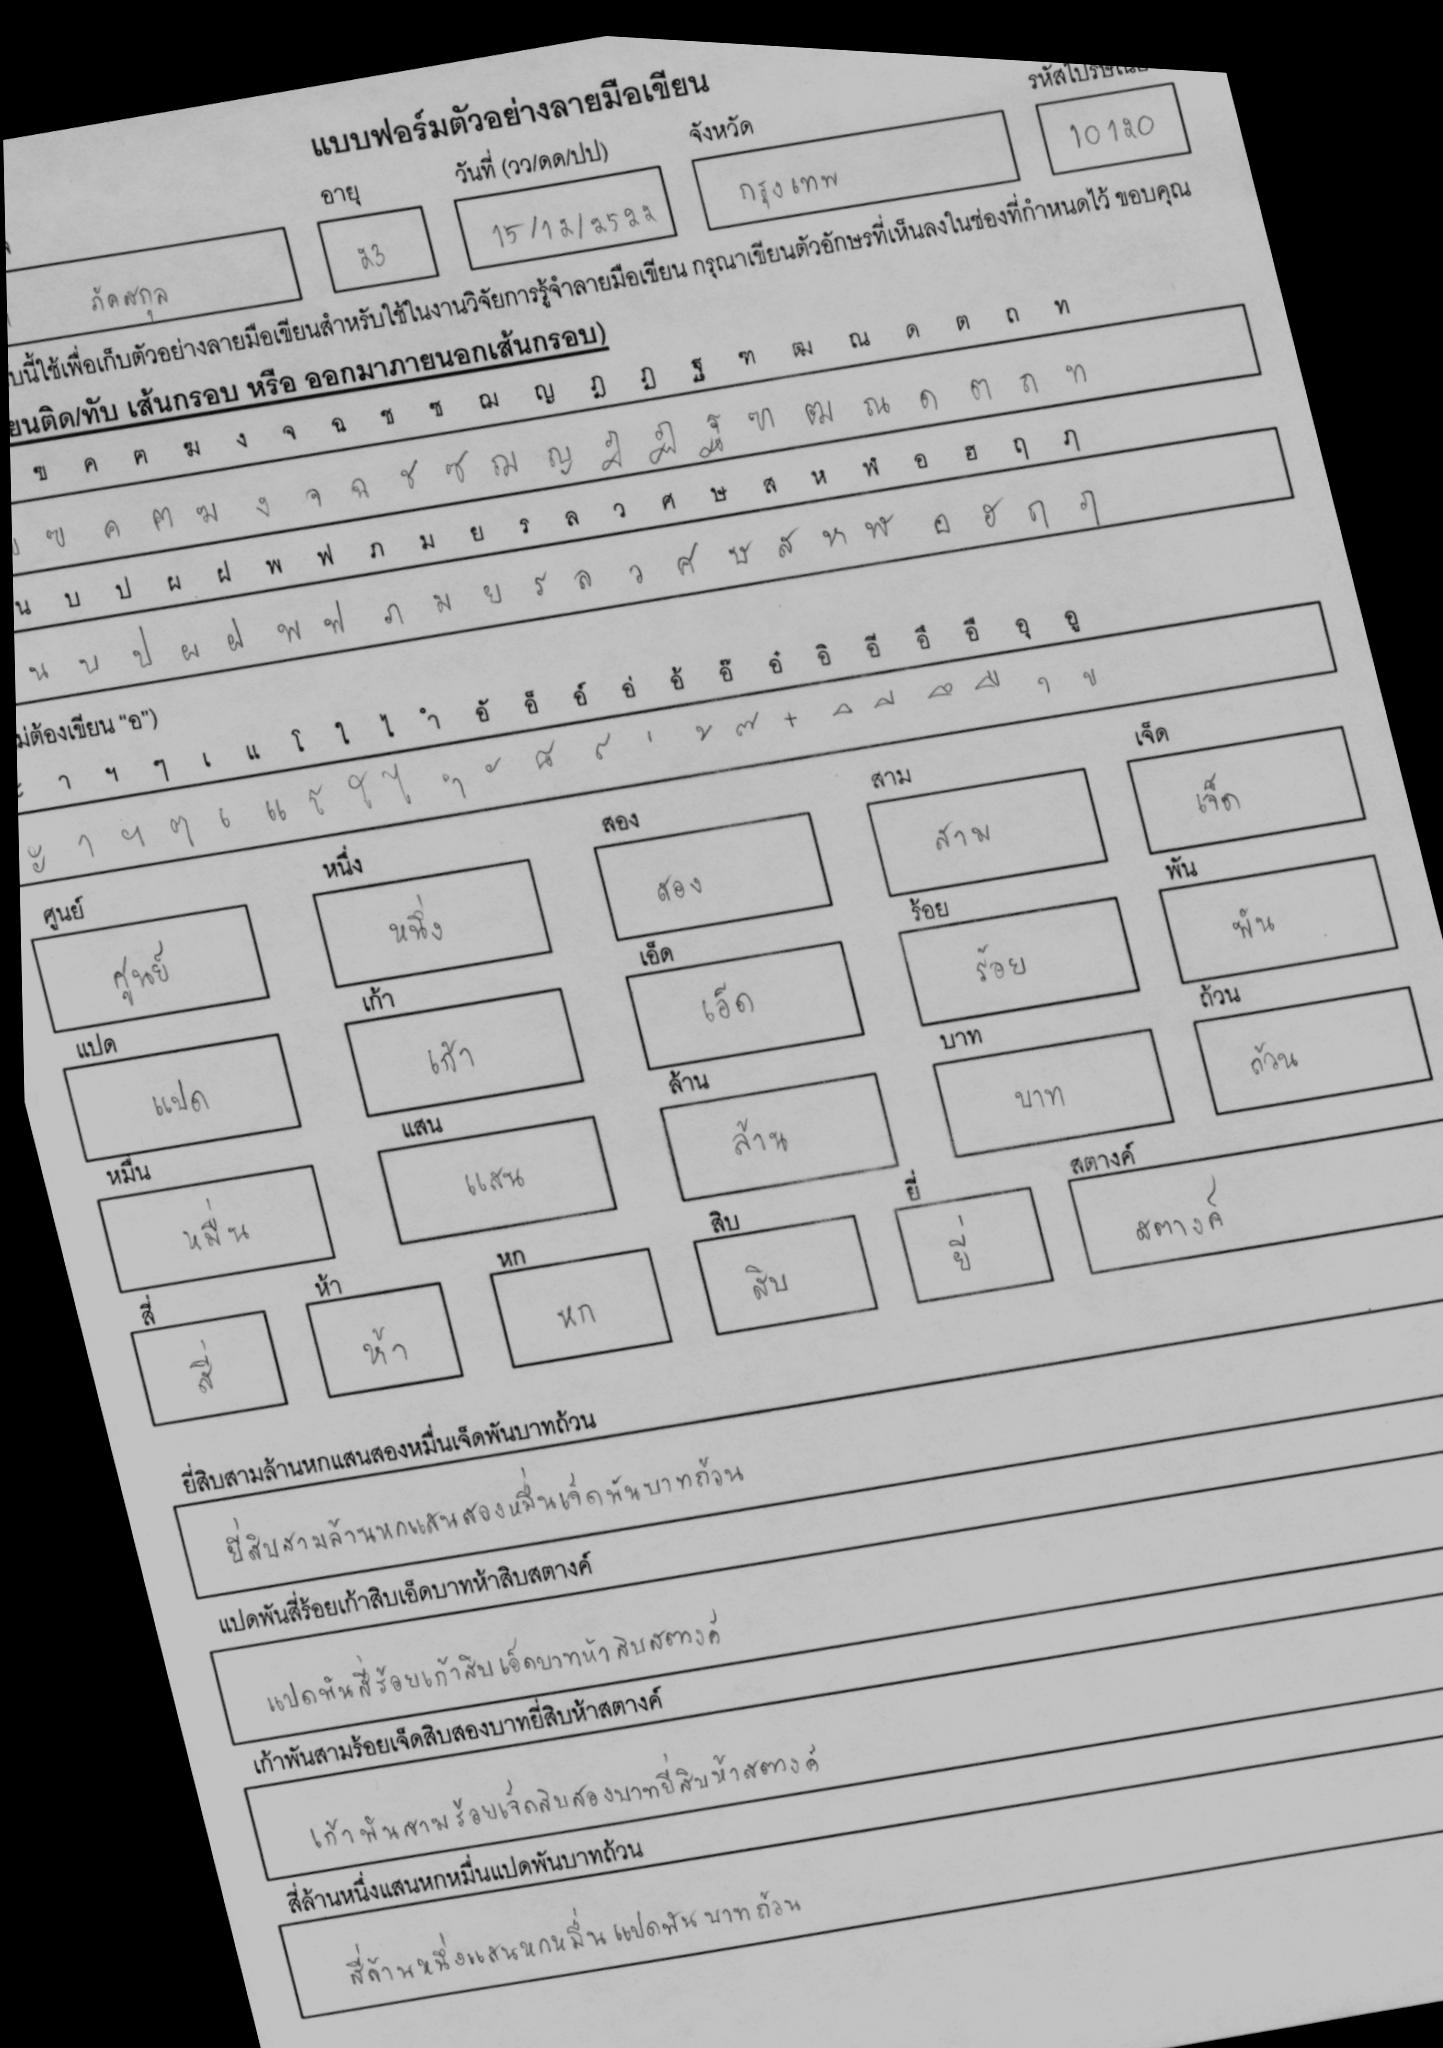 แบบฟอร์มตัวอย่างลายมือเขียน
อายุ วันที่ (วว/ดด/ปป) จังหวัด
ภัคสกุล 23 15/12/2522 กรุงเทพ 10120
บนี้ใช้เพื่อเก็บตัวอย่างลายมือเขียนสำหรับใช้ในงานวิจัยการรู้จำลายมือเขียน กรุณาเขียนตัวอักษรที่เห็นลงในช่องที่กำหนดไว้ ขอบคุณ
ยนติด/ทับ เส้นกรอบ หรือ ออกมาภายนอกเส้นกรอบ)
ฃ ค ฅ ฆ ง จ ฉ ช ซ ฌ ญ ฎ ฏ ฐ ฑ ฒ ณ ด ต ถ ท
ฃ ค ฅ ฆ ง จ ฉ ช ซ ฌ ญ ฎ ฏ ฐ ฑ ฒ ณ ด ต ถ ท
น บ ป ผ ฝ พ ฟ ภ ม ย ร ล ว ศ ษ ส ห ฬ อ ฮ ฤ ฦ
น บ ป ผ ฝ พ ฟ ภ ม ย ร ล ว ศ ษ ส ห ฬ อ ฮ ฤ ฦ
ม่ต้องเขียน "อ")
ะ า ฯ ๆ เ แ โ ใ ไ ำ อั อ็ อ์ อ่ อ้ อ๊ อ๋ อิ อี อึ อื อุ อู
ะ า ฯ ๆ เ แ โ ใ ไ ำ ั ็ ์ ่ ้ ๊ ๋ ิ ี ึ ื ุ ู
ศูนย์ หนึ่ง สอง สาม เจ็ด
ศูนย์ หนึ่ง สอง สาม เจ็ด
แปด เก้า เอ็ด ร้อย พัน
แปด เก้า เอ็ด ร้อย พัน
หมื่น แสน ล้าน บาท ถ้วน
หมื่น แสน ล้าน บาท ถ้วน
สี่ ห้า หก สิบ ยี่ สตางค์
สี่ ห้า หก สิบ ยี่ สตางค์
ยี่สิบสามล้านหกแสนสองหมื่นเจ็ดพันบาทถ้วน
ยี่สิบสามล้านหกแสนสองหมื่นเจ็ดพันบาทถ้วน
แปดพันสี่ร้อยเก้าสิบเอ็ดบาทห้าสิบสตางค์
แปดพันสี่ร้อยเก้าสิบเอ็ดบาทห้าสิบสตางค์
เก้าพันสามร้อยเจ็ดสิบสองบาทยี่สิบห้าสตางค์
เก้าพันสามร้อยเจ็ดสิบสองบาทยี่สิบห้าสตางค์
สี่ล้านหนึ่งแสนหกหมื่นแปดพันบาทถ้วน
สี่ล้านหนึ่งแสนหกหมื่นแปดพันบาทถ้วน